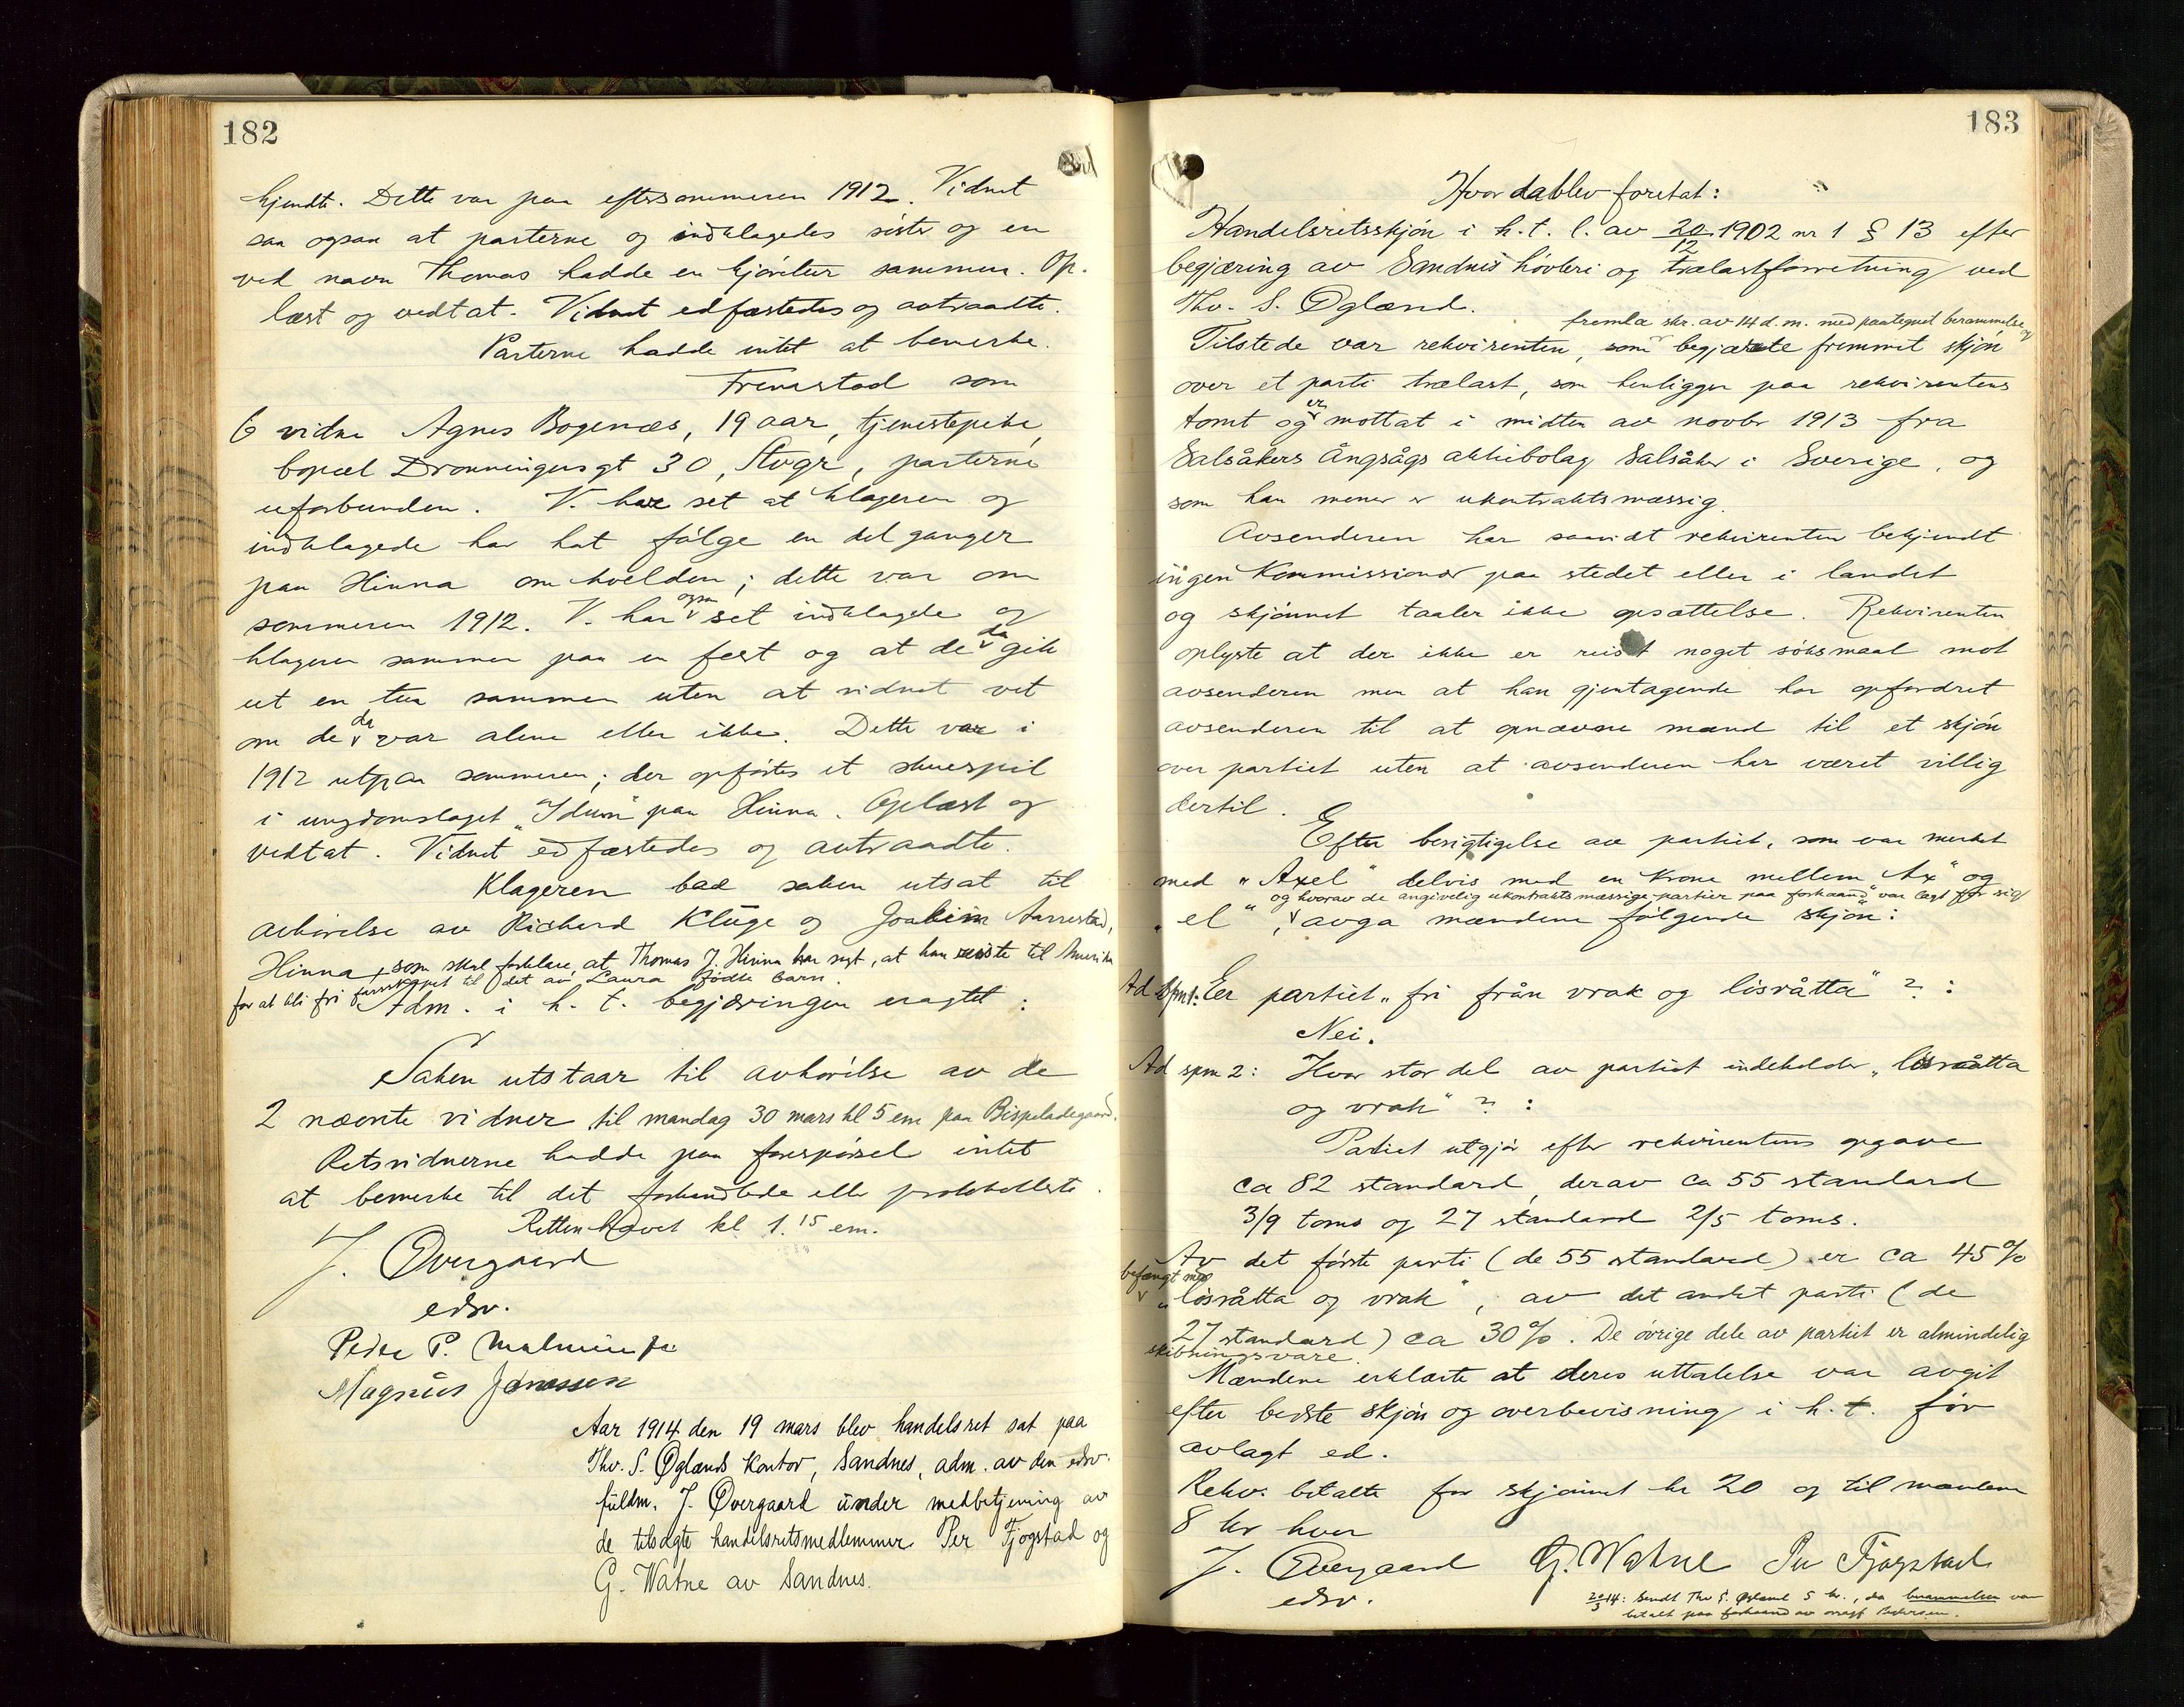 182
kjendte. Dette var paa eftersommeren 1912. Vidnet
saa ogsaa at parterne og indklagedes søster og en
ved navn Thomas hadde en kjøretur sammen. Op-
læst og vedtat. Vidnet edfæstedes og avtraadte.
Parterne hadde intet at bemerke.
Fremstod som
6 vidne Agnes Bogenæs, 19 aar, tjenestepike,
bopæl Dronningensgt 30, Stvgr, parterne
uforbunden. V. har set at klageren og
indklagede har hat følge en del ganger
paa Hinna om kvelden; dette var om
sommeren 1912. V. har ogsaa set indklagede og
klageren sammen paa en fest og at de da gik
ut en tur sammen uten at vidnet vet
om de da var alene eller ikke. Dette var i
1912 utpaa sommeren; der opførtes et skuespil
i ungdomslaget "Idun" paa Hinna. Oplæst og
vedtat. Vidnet edfæstedes og avtraadte.
Klageren bad saken utsat til
avhørelse av Richard Kluge og Joakim Aarrestad,
Hinna, som skal forklare, at Thomas J. Hinna har sagt, at han reiste til Amerika
for at bli fri farskapet til det av Laura fødte barn.
Adm. i h. t. begjæringen eragtet:
Saken utstaar til avhørelse av de
2 nævnte vidner til mandag 30 mars kl 5 em paa Bispeladegaard.
Retsvidnerne hadde paa forespørsel intet
at bemerke til det forhandlede eller protokollerte.
Retten hævet kl. 1.15 em.
J. Øvergaard
edsv.
Peder P. Malmin
Magnus Jonassen
Aar 1914 den 19 mars blev handelsret sat paa
Thv. S. Øglænds kontor, Sandnes, adm. av den edsv.
fuldm. J. Øvergaard under medbetjening av
de tilsagte handelsretsmedlemmer Per Fjogstad og
G. Watne av Sandnes.
183
Hvor da blev foretat:
Handelsretsskjøn i h. t. l. av 20/12 1902 nr 1 § 13 efter
begjæring av Sandnes høvleri og trælastforretning ved
Thv. S. Øglænd.
fremla skr. av 14 d. m. med paategnet berammelse og
Tilstede var rekvirenten, som begjærte fremmet skjøn
over et parti trælast, som henligger paa rekvirentens
tomt og er mottat i midten av novbr 1913 fra
Salsåkers Ångsågs aktiebolag Salsåker i Sverige, og
som han mener er ukontraktsmæssig.
Avsenderen har saavidt rekvirenten bekjendt
ingen kommissionær paa stedet eller i landet
og skjønnet taaler ikke opsættelse. Rekvirenten
oplyste at der ikke er reist noget søksmaal mot
avsenderen men at han gjentagende har opfordret
avsenderen til at opnævne mænd til et skjøn
over partiet uten at avsenderen har været villig
dertil.
Efter besigtigelse av partiet, som var merket
med "Axel" delvis med en krone mellem "Ax" og
og hvorav de angivelig ukontraktsmæssige partier paa forhaand var lagt for sig
"el", avga mændene følgende skjøn:
Ad spm 1: Er partiet "fri från vrak og lösråtta"?:
Nei.
Ad spm 2: Hvor stor del av partiet indeholder "lösråtta
og vrak"?:
Partiet utgjør efter rekvirentens opgave
ca 82 standard, derav ca 55 standard
3/9 toms og 27 standard 2/5 toms.
Av det første parti (de 55 standard) er ca 45%
befængt med
"lösråtta og vrak", av det andet parti (de
27 standard) ca 30%. De øvrige dele av partiet er almindelig
skibningsvare.
Mændene erklærte at deres uttalelse var avgit
efter bedste skjøn og overbevisning i h. t. før
avlagt ed.
Rekv. betalte for skjønnet kr 20 og til mændene
8 kr hver
J. Øvergaard G. Watne Per Fjogstad
edsv.
20/3 14: Sendt Thv S. Øglænd 5 kr., da berammelsen var
betalt paa forhaand av Pedersen.